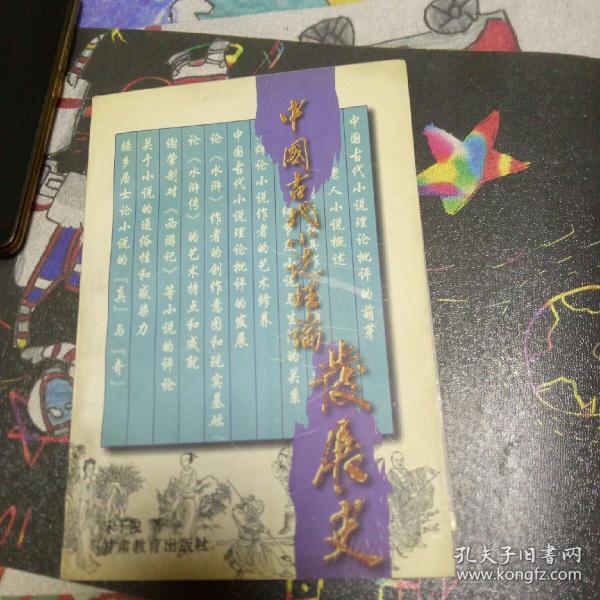 中國古代小说理論
發展史
中国古代小说理论批评的萌芽
人小说概述
的关系
评论小说作者的艺术修养
中国古代小说理论批评的发展
论《水浒》作者的创作意图和现实基础
论《水浒传》的艺术特点和成就
谢肇制对《西游记》等小说的评论
关于小说的通俗性和感染力
睡乡居士论小说的『真』与『奇』
甘肃教育出版社
孔夫子旧书网
www.kongfz.com